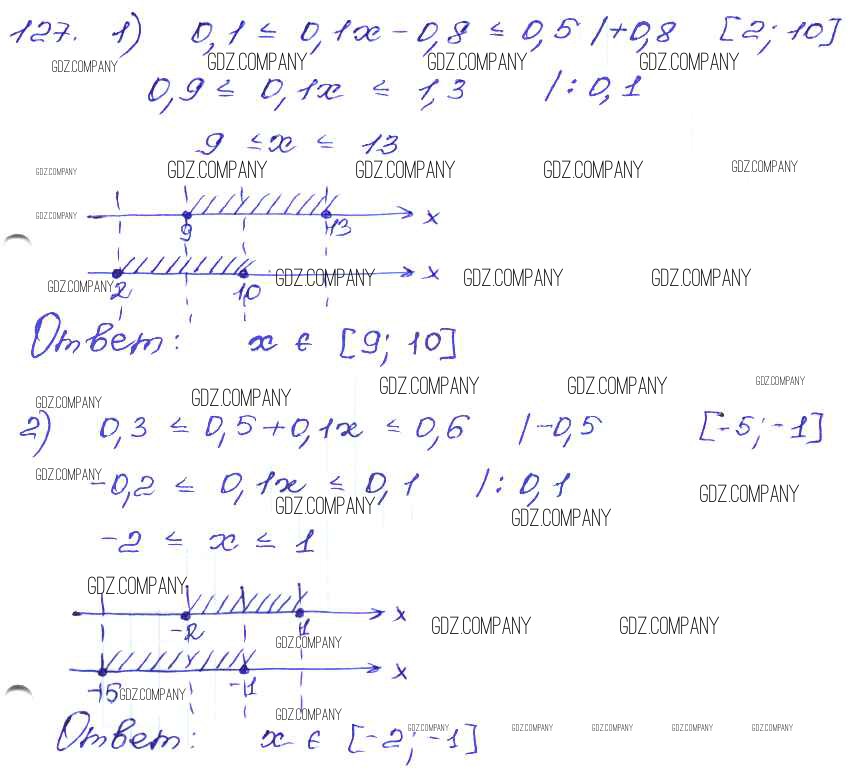 127. 1) 0,1 ≤ 0,1x - 0,8 ≤ 0,5 /+0,8 [2; 10]
GDZ.COMPANY GDZ.COMPANY GDZ.COMPANY GDZ.COMPANY
0,9 ≤ 0,1x ≤ 1,3 /: 0,1
9 ≤ x ≤ 13
GDZ.COMPANY GDZ.COMPANY GDZ.COMPANY GDZ.COMPANY GDZ.COMPANY
GDZ.COMPANY x
9 13
x
GDZ.COMPANY 2 10 GDZ.COMPANY GDZ.COMPANY GDZ.COMPANY
Ответ: x ∈ [9; 10]
GDZ.COMPANY GDZ.COMPANY GDZ.COMPANY GDZ.COMPANY GDZ.COMPANY
2) 0,3 ≤ 0,5+0,1x ≤ 0,6 /-0,5 [-5; -1]
GDZ.COMPANY -0,2 ≤ 0,1x ≤ 0,1 /: 0,1 GDZ.COMPANY
GDZ.COMPANY GDZ.COMPANY
-2 ≤ x ≤ 1
GDZ.COMPANY
x
-2 1 GDZ.COMPANY GDZ.COMPANY
GDZ.COMPANY
x
-5 GDZ.COMPANY -1
GDZ.COMPANY
Ответ: x ∈ [-2; -1]
GDZ.COMPANY GDZ.COMPANY GDZ.COMPANY GDZ.COMPANY GDZ.COMPANY